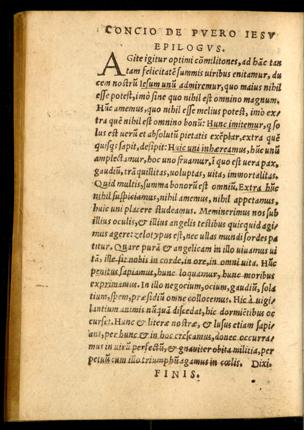 CONCIO DE PVERO IESV
EPILOGVS.
AGite igitur optimi cõmilitones, ad hãc tan
tam felicitatẽ summis uiribus enitamur, du
cem nostrũ Iesum unũ admiremur, quo maius nihil
esse potest, imò sine quo nihil est omnino magnum.
Hũc amemus, quo nihil esse melius potest, imò ex
tra quẽ nihil est omnino bonũ: Hunc imitemur, q̃ so
lus est uerũ et absolutũ pietatis exẽplar, extra quẽ
quisq̃s sapit, desipit: Huic uni inhæreamus, hũc unũ
amplectamur, hoc uno fruamur, ĩ quo est uera pax,
gaudiũ, trãquillitas, uoluptas, uita, immortalitas.
Quid multis, summa bonorũ est omniũ. Extra hũc
nihil suspiciamus, nihil amemus, nihil appetamus,
huic uni placere studeamus. Meminerimus nos sub
illius oculis, & illius angelis testibus quicquid agi-
mus agere: zelotypus est, nec ullas mundi sordes pa
titur. Quare purã & angelicam in illo uiuamus ui
tã, ille sit nobis in corde, in ore, in omni uita. Hũc
penitus sapiamus, hunc loquamur, hunc moribus
exprimamus. In illo negocium, ocium, gaudiũ, sola
tium, spem, præsidiũ omne collocemus. Hic à uigi-
lantium animis nũquã discedat, hic dormiẽtibus oc
curset. Hunc & literæ nostræ, & lusus etiam sapi-
ant, per hunc & in hoc crescamus, donec occurra-
mus in uirũ perfectũ, & gnauiter obita militia, per
petuũ cum illo triumphũ agamus in cœlis. Dixi.
FINIS.